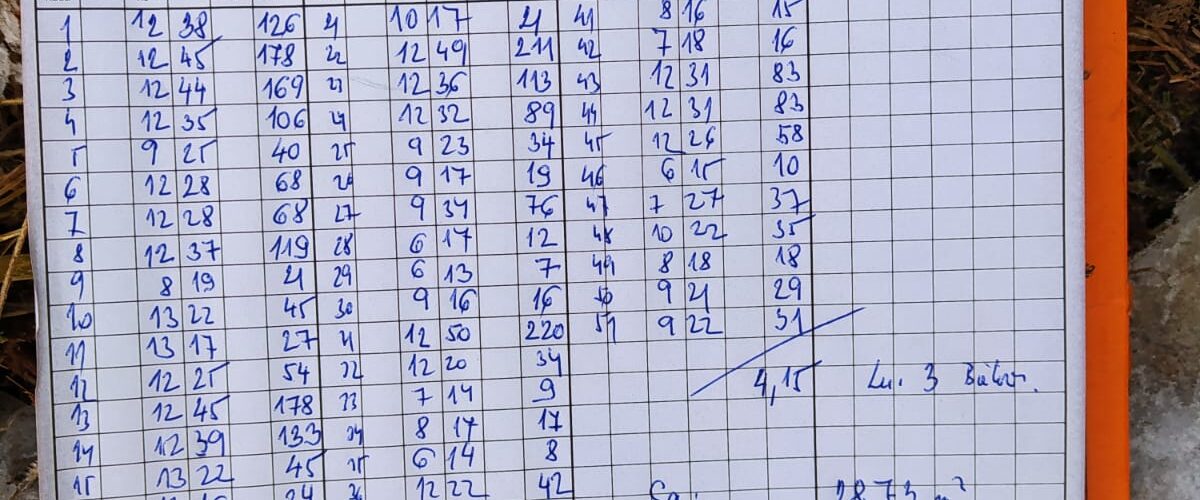 1 12 38 126 21 10 17 21 41 8 16 15
2 12 45 178 22 12 49 211 42 7 18 16
3 12 44 169 23 12 36 113 43 12 31 83
4 12 35 106 24 12 32 89 44 12 31 83
5 9 25 40 25 9 23 34 45 12 26 58
6 12 28 68 26 9 17 19 46 6 15 10
7 12 28 68 27 9 34 76 47 7 27 37
8 12 37 119 28 6 17 12 48 10 22 35
9 8 19 21 29 6 13 7 49 8 18 18
10 13 22 45 30 9 16 16 50 9 21 29
11 13 17 27 31 12 50 220 51 9 22 31
12 12 25 54 32 12 20 34
4,15
3
13 12 45 178 33 7 14 9
14 12 39 133 34 8 17 17
15 13 22 45 35 6 14 8
24 36 12 22 42